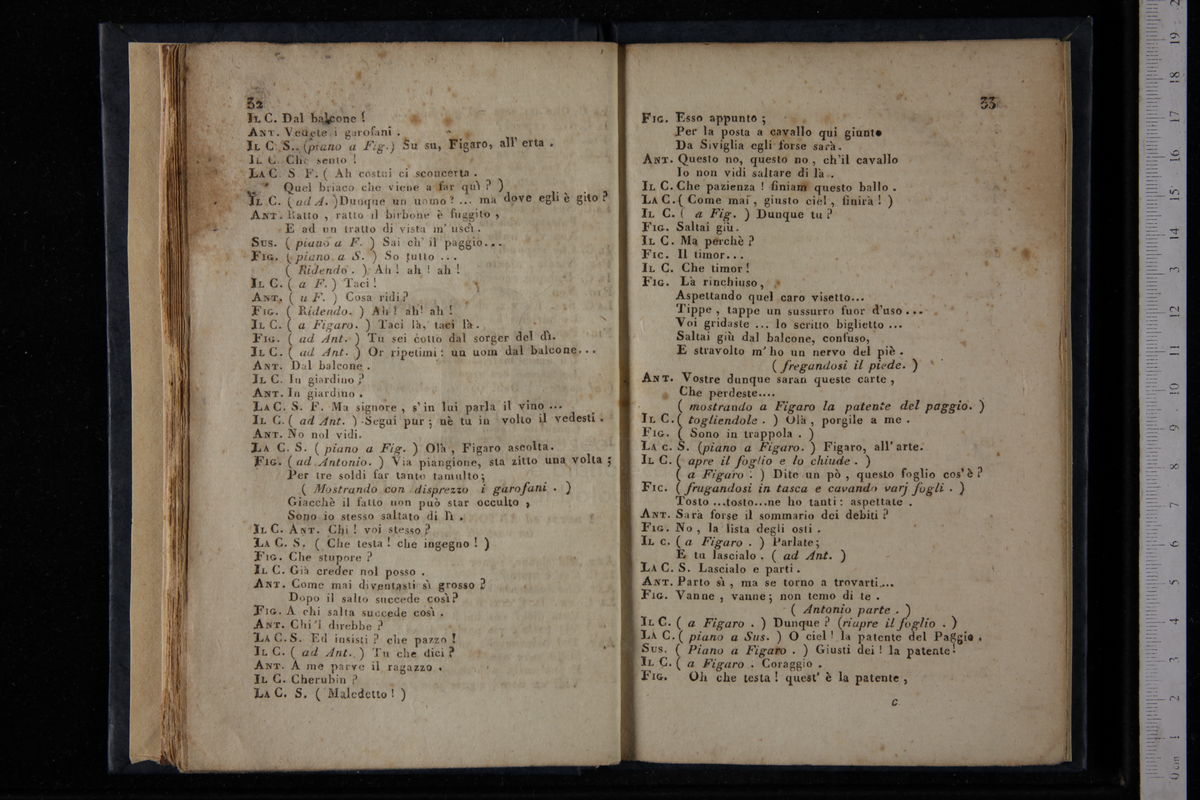 32
IL C. Dal balcone !
ANT. Vedete i garofani .
IL C. S. (piano a Fig.) Su su, Figaro, all' erta .
IL C. Che sento !
LA C. S. F. ( Ah costui ci sconcerta .
Quel briaco che viene a far quì ? )
IL C. ( ad A. ) Dunque un uomo ? ... ma dove egli è gito ?
ANT. Ratto , ratto il birbone è fuggito ,
E ad un tratto di vista m' uscì .
SUS. ( piano a F. ) Sai ch' il paggio...
FIG. ( piano a S. ) So tutto ...
( Ridendo . ) Ah ! ah ! ah !
IL C. ( a F. ) Taci !
ANT. ( a F. ) Cosa ridi ?
FIG. ( Ridendo. ) Ah ! ah! ah !
IL C. ( a Figaro. ) Taci là, taci là.
FIG. ( ad Ant. ) Tu sei cotto dal sorger del dì.
IL C. ( ad Ant. ) Or ripetimi : un uom dal balcone...
ANT. Dal balcone .
IL C. In giardino ?
ANT. In giardino .
LA C. S. F. Ma signore , s' in lui parla il vino ...
IL C. ( ad Ant. ) Segui pur ; nè tu in volto il vedesti .
ANT. No nol vidi.
LA C. S. ( piano a Fig. ) Olà , Figaro ascolta.
FIG. ( ad Antonio. ) Via piangione, sta zitto una volta ;
Per tre soldi far tanto tumulto ;
( Mostrando con disprezzo i garofani . )
Giacchè il fatto non può star occulto ,
Sono io stesso saltato di lì .
IL C. ANT. Chi ! voi stesso ?
LA C. S. ( Che testa ! che ingegno ! )
FIG. Che stupore ?
IL C. Già creder nol posso .
ANT. Come mai diventasti sì grosso ?
Dopo il salto succede così ?
FIG. A chi salta succede così .
ANT. Chi 'l direbbe ?
LA C. S. Ed insisti ? che pazzo !
IL C. ( ad Ant. ) Tu che dici ?
ANT. A me parve il ragazzo .
IL C. Cherubin ?
LA C. S. ( Maledetto ! )
33
FIG. Esso appunto ;
Per la posta a cavallo qui giunto
Da Siviglia egli forse sarà.
ANT. Questo no, questo no , ch'il cavallo
Io non vidi saltare di là .
IL C. Che pazienza ! finiam questo ballo .
LA C. ( Come mai , giusto ciel , finirà ! )
IL C. ( a Fig. ) Dunque tu ?
FIG. Saltai giù.
IL C. Ma perchè ?
FIC. Il timor...
IL C. Che timor !
FIG. Là rinchiuso ,
Aspettando quel caro visetto...
Tippe , tappe un sussurro fuor d'uso ...
Voi gridaste ... lo scritto biglietto ...
Saltai giù dal balcone, confuso,
E stravolto m' ho un nervo del piè .
( fregandosi il piede. )
ANT. Vostre dunque saran queste carte ,
Che perdeste....
( mostrando a Figaro la patente del paggio. )
IL C. ( togliendole . ) Olà , porgile a me .
FIG. ( Sono in trappola . )
LA C. S. (piano a Figaro. ) Figaro, all' arte.
IL C. ( apre il foglio e lo chiude . )
( a Figaro . ) Dite un pò , questo foglio cos' è ?
FIC. ( frugandosi in tasca e cavando varj fogli . )
Tosto ...tosto...ne ho tanti : aspettate .
ANT. Sarà forse il sommario dei debiti ?
FIG. No , la lista degli osti .
IL C. ( a Figaro . ) Parlate ;
E tu lascialo . ( ad Ant. )
LA C. S. Lascialo e parti .
ANT. Parto sì , ma se torno a trovarti....
FIG. Vanne , vanne ; non temo di te .
( Antonio parte . )
IL C. ( a Figaro . ) Dunque ? (riapre il foglio . )
LA C. ( piano a Sus. ) O ciel ! la patente del Paggio .
SUS. ( Piano a Figaro . ) Giusti dei ! la patente !
IL C. ( a Figaro . Coraggio .
FIG. Oh che testa ! quest' è la patente ,
C
0 cm 1 2 3 4 5 6 7 8 9 10 11 12 13 14 15 16 17 18 19